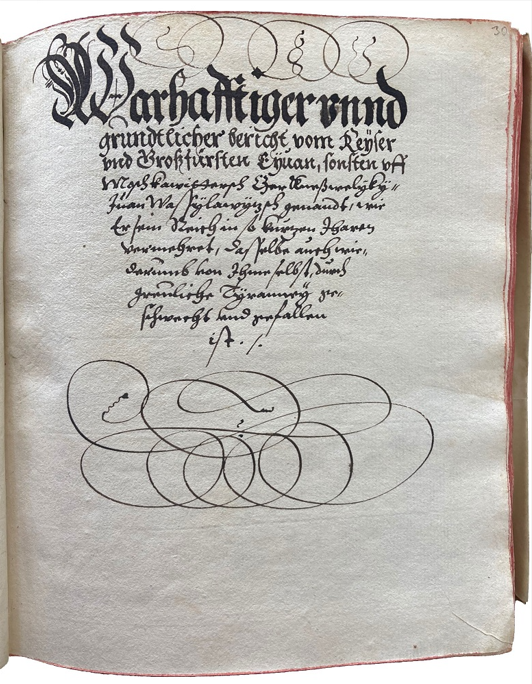 30
Warhafftiger vnnd
grundtlicher bericht, vom Keyser
vnd Großfürsten Eyuan, sonsten vff
Moschkawittersch Czer Kneßwelyky-
Juan Wassylawyzsch genandt, wie
Er sein Reich in so kurtzen Jharen
vermehret, dasselbe auch wie-
derumb von Ihme selbst, durch
greuliche Tyranney ge-
schwecht vnd gefallen
ist ./.